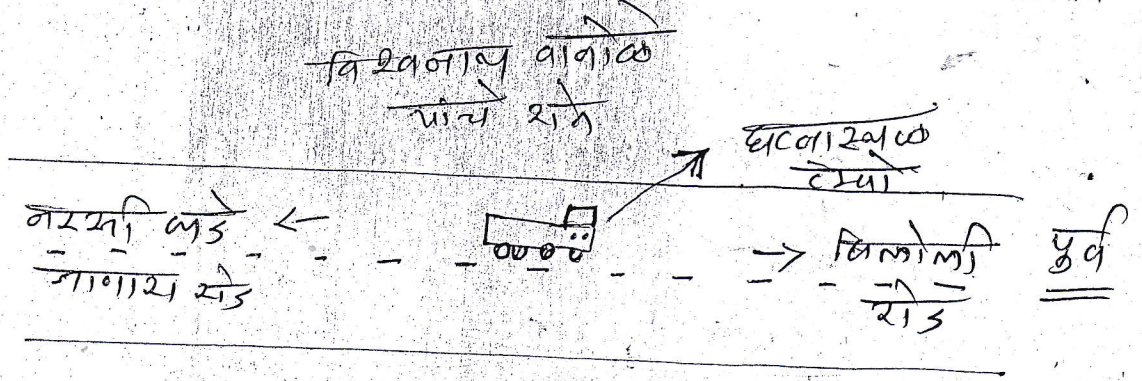 विश्वनाथ वानोळे
यांचे शेत
घटनास्थळ
टेम्पो
नरसी कडे ←
जाणारा रोड
→ बिलोली
रोड
पूर्व